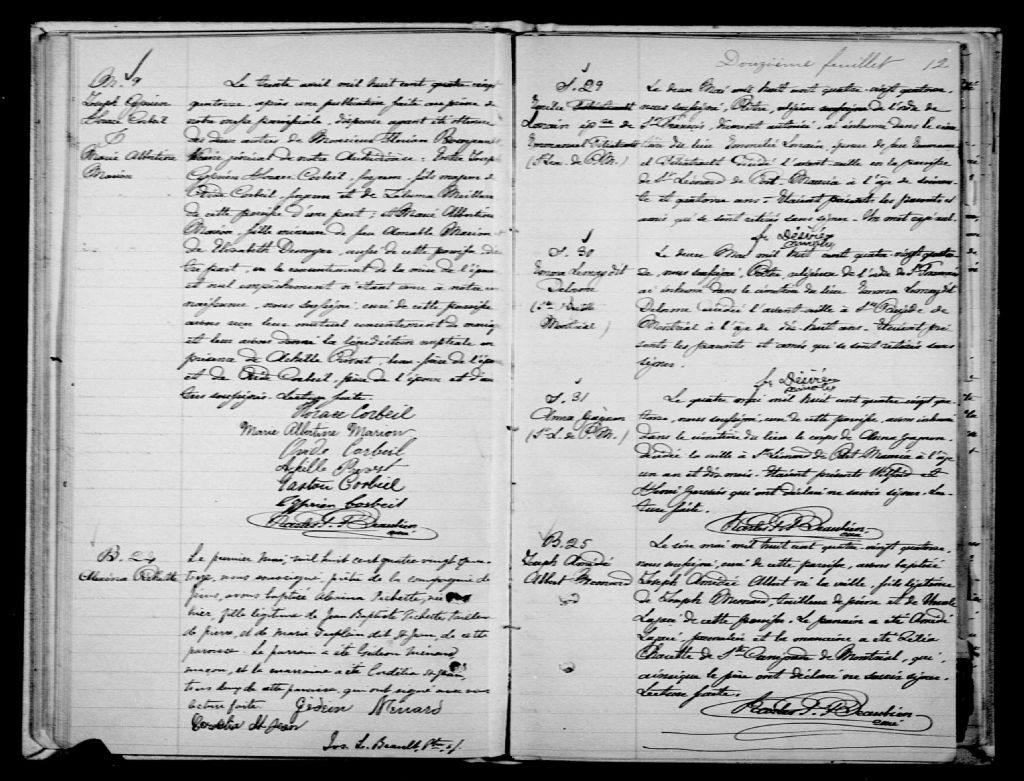 M. 9
Joseph Cyprien
Horace Corbeil
&
Marie Albertine
Marion
Le trente avril mil huit cent quatre vingt
quatorze, après une publication faite au prône de
notre messe paroissiale, dispense ayant été obtenue
de deux autres de Monsieur Florian Bourgeault
Vicaire général de notre Archidiocèse; Entre Joseph
Cyprien Horace Corbeil, fils majeur de
Corbeil, et de
de cette paroisse d'une part; et Marie Albertine
Marion, fille mineure de feu Aimable Marion
de Elisabeth aussi de cette paroisse
tre part, vu le consentement de la mère de l'épouse
et nul empêchement n'étant venu à notre con
naissance, nous soussigné curé de cette paroisse
avons reçu leur mutuel consentement de mariage
et leur avons donné la bénédiction nuptiale en
présence de Achille Provost, beau-frère de
et de Corbeil, père de l'époux et d'au
tres soussignés. Lecture faite.
Horace Corbeil
Marie Albertine Marion
Corbeil
Achille Provost
Gaston Corbeil
Cyprien Corbeil
Charles P. Beaubien
curé
B. 24
Alexina Pichette
Le premier mai, mil huit cent quatre vingt qua
torze, nous soussigné, prêtre de la compagnie de
Jésus, avons baptisé Alexina Pichette, née
hier, fille légitime de Jean Baptiste Pichette, tailleur
de pierre, et de Marie dit St Jean, de cette
paroisse. Le parrain a été Gédéon Ménard
maçon, et la marraine a été Cordélia St Jean,
tous deux de cette paroisse, qui ont signé avec nous
lecture faite. Gédéon Ménard
Cordélia St Jean
Jos. L. Beaudet, Ptre, s.j.
Douzième feuillet 12
S. 29
Lorain de
Emmanuel
(St Léon. de P.M.)
Le deux Mai mil huit cent quatre-vingt quatorze
nous soussigné, Prêtre, religieux soussigné de l'ordre de
St François, dûment autorisé, ai inhumé dans le cime
tière du lieu Lorain, épouse de feu Emmanu
el décédée l'avant-veille en la paroisse
de St Léonard de Port-Maurice à l'âge de soixan
te et quatorze ans. Etaient présents les parents et
amis qui se sont retirés sans signer. Un mot rayé nul.
fr. Désiré
S. 30
Emma Lemay dit
Delorme
(Ste
Montréal)
Le deux Mai mil huit cent quatre-vingt quator
ze, nous soussigné, Prêtre, religieux de l'ordre de St François
ai inhumé dans le cimetière du lieu Emma Lemay dit
Delorme décédée l'avant-veille à Ste de
Montréal à l'âge de dix huit ans. Etaient pré
sents les parents et amis qui se sont retirés sans
signer.
fr. Désiré
S. 31
Anna Gagnon
(St L. de P. M.)
Le quatre mai mil huit cent quatre vingt qua
torze, nous soussigné, curé de cette paroisse, avons inhumé
dans le cimetière du lieu le corps de Anna Gagnon
décédée la veille à St Léonard de Port Maurice à l'âge
un an et dix mois. Etaient présents Wilfrid et
Henri Gervais qui ont déclaré ne savoir signer. Lec
ture faite.
Charles P. Beaubien
curé
B. 25
Joseph Amédé
Albert Menard
Le six mai mil huit cent quatre-vingt quatorze,
nous soussigné, curé de cette paroisse, avons baptisé
Joseph Amédée Albert né la veille, fils légitime
de Joseph Menard, tailleur de pierre et de
de cette paroisse. Le parrain a été Amédé
et la marraine a été
de Ste Cunégonde de Montréal, qui,
ainsi que le père ont déclaré ne savoir signer.
Lecture faite.
Charles P. Beaubien
curé